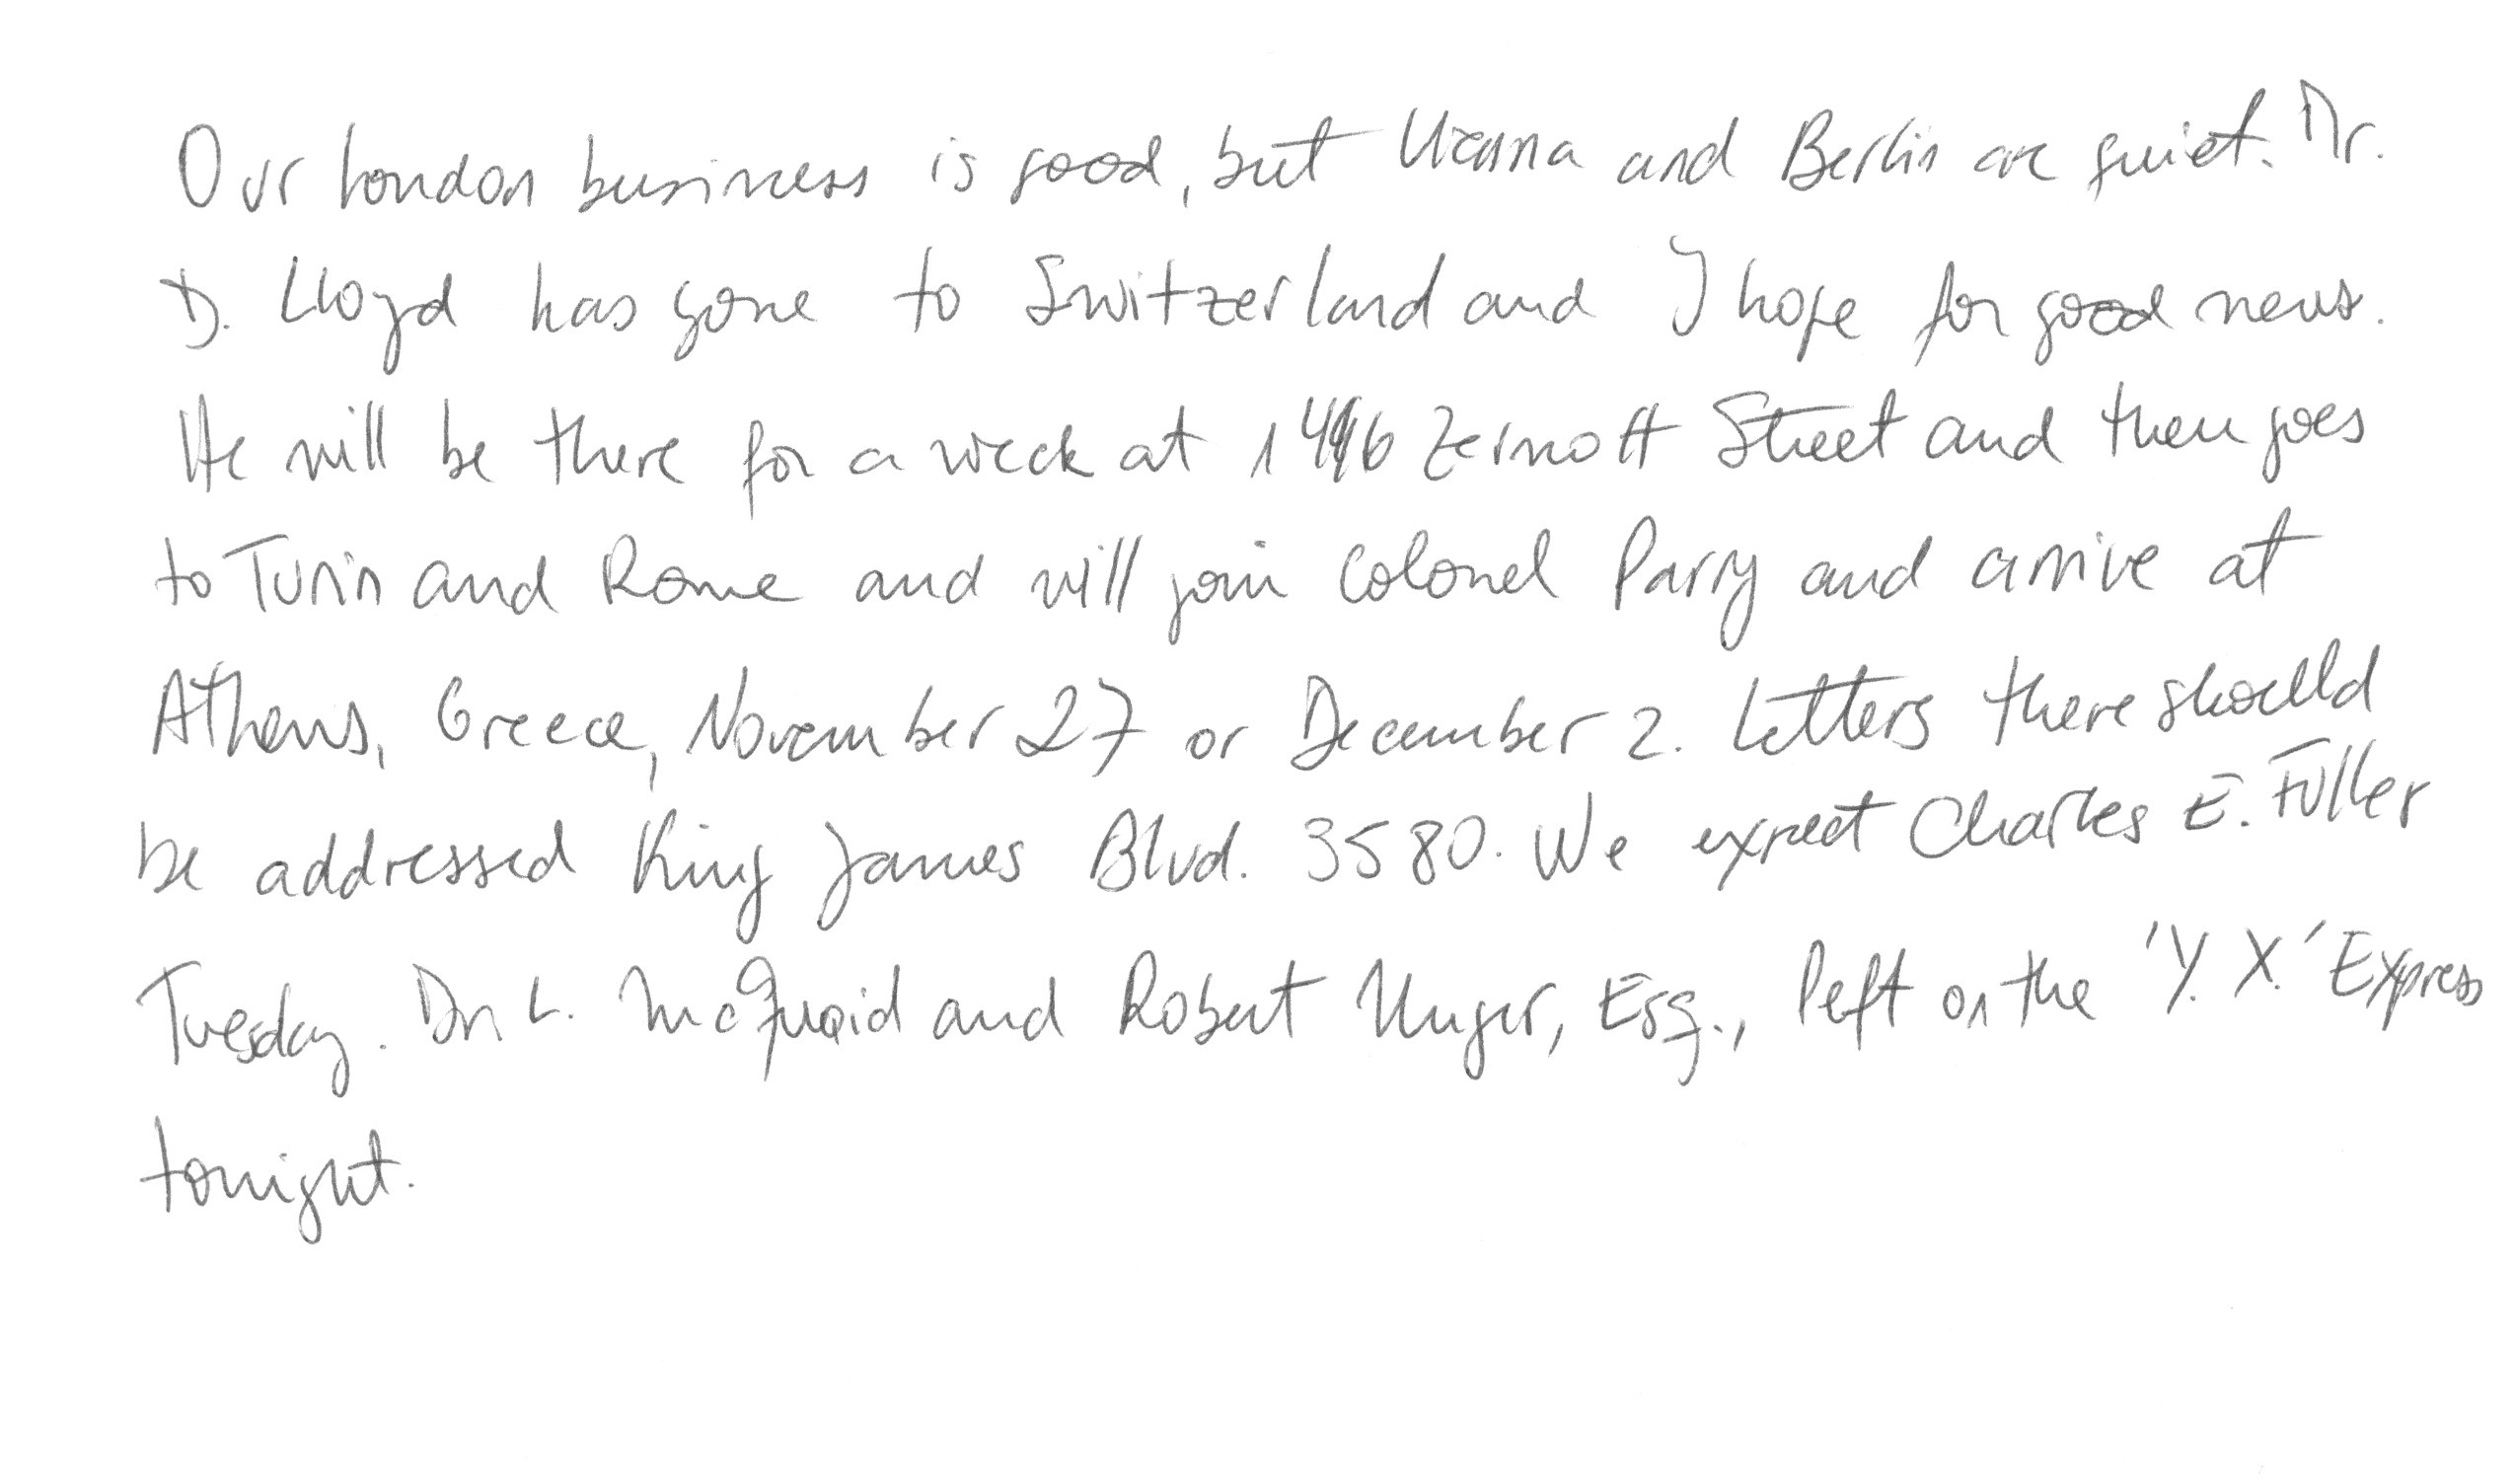 Our London business is good, but Vienna and Berlin are quiet. Mr.
D. Lloyd has gone to Switzerland and I hope for good news.
He will be there for a week at 1496 Zermott Street and then goes
to Turin and Rome and will join Colonel Parry and arrive at
Athens, Greece, November 27 or December 2. Letters there should
be addressed King James Blvd. 3580. We expect Charles E. Fuller
Tuesday. Dr. L. McQuaid and Robert Unger, Esq., left on the 'Y. X.' Express
tonight.